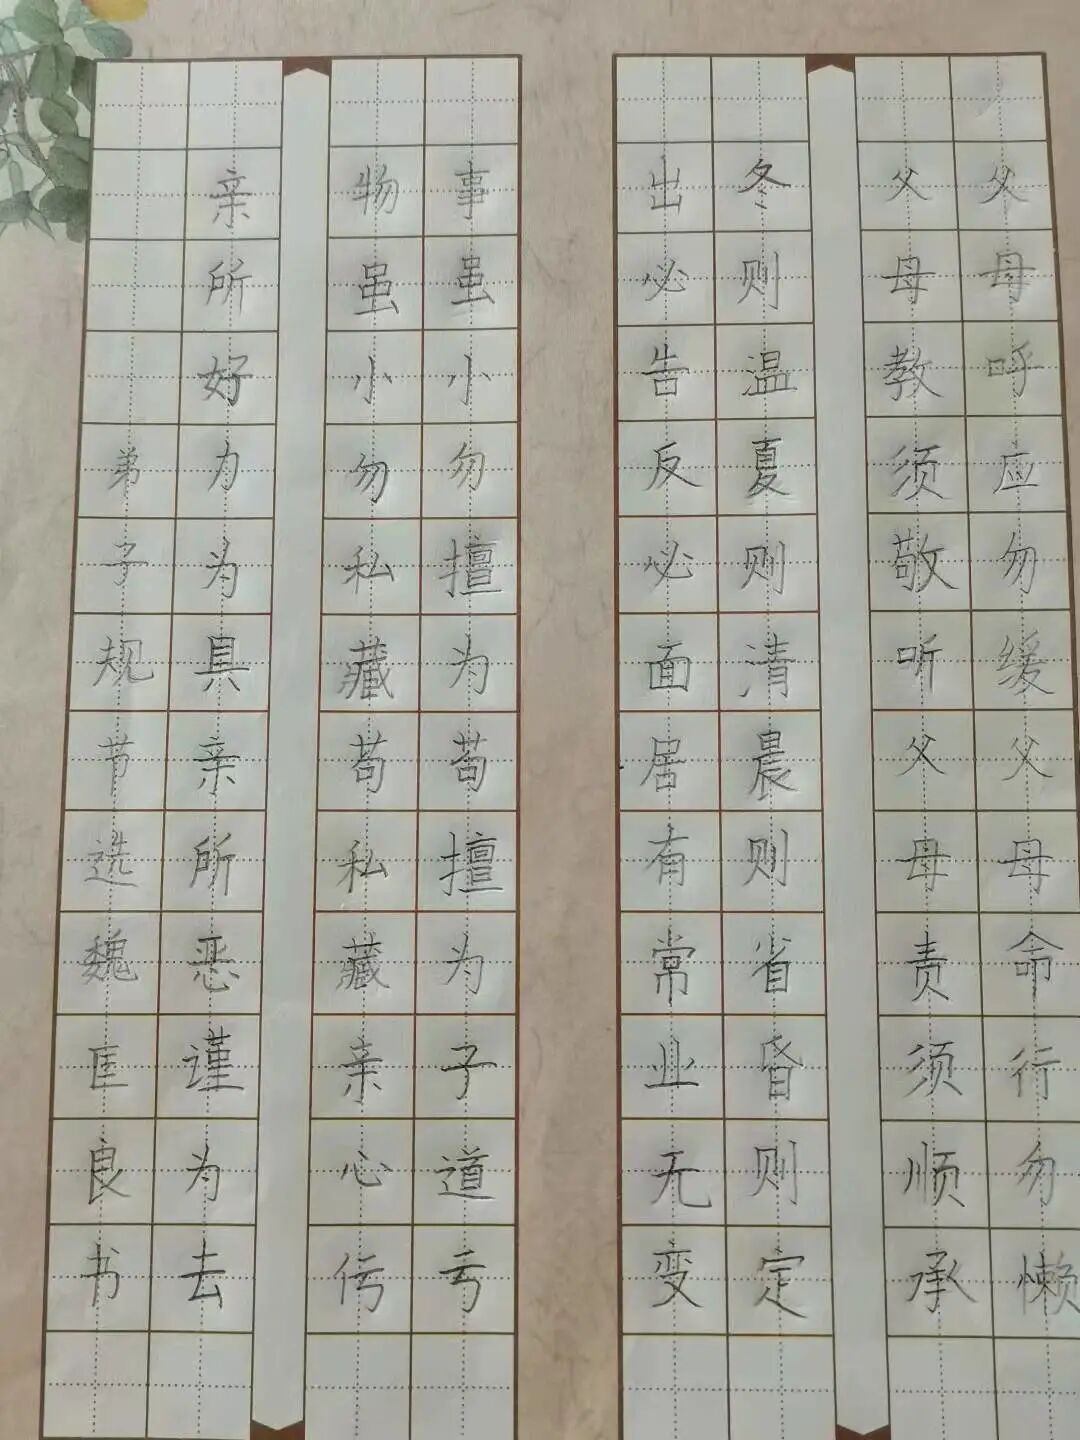 父母呼应勿缓父母命行勿懒
父母教须敬听父母责须顺承
冬则温夏则清晨则省昏则定
出必告反必面居有常业无变
事虽小勿擅为苟擅为子道亏
物虽小勿私藏苟私藏亲心伤
亲所好力为具亲所恶谨为去
弟子规节选魏匡良书